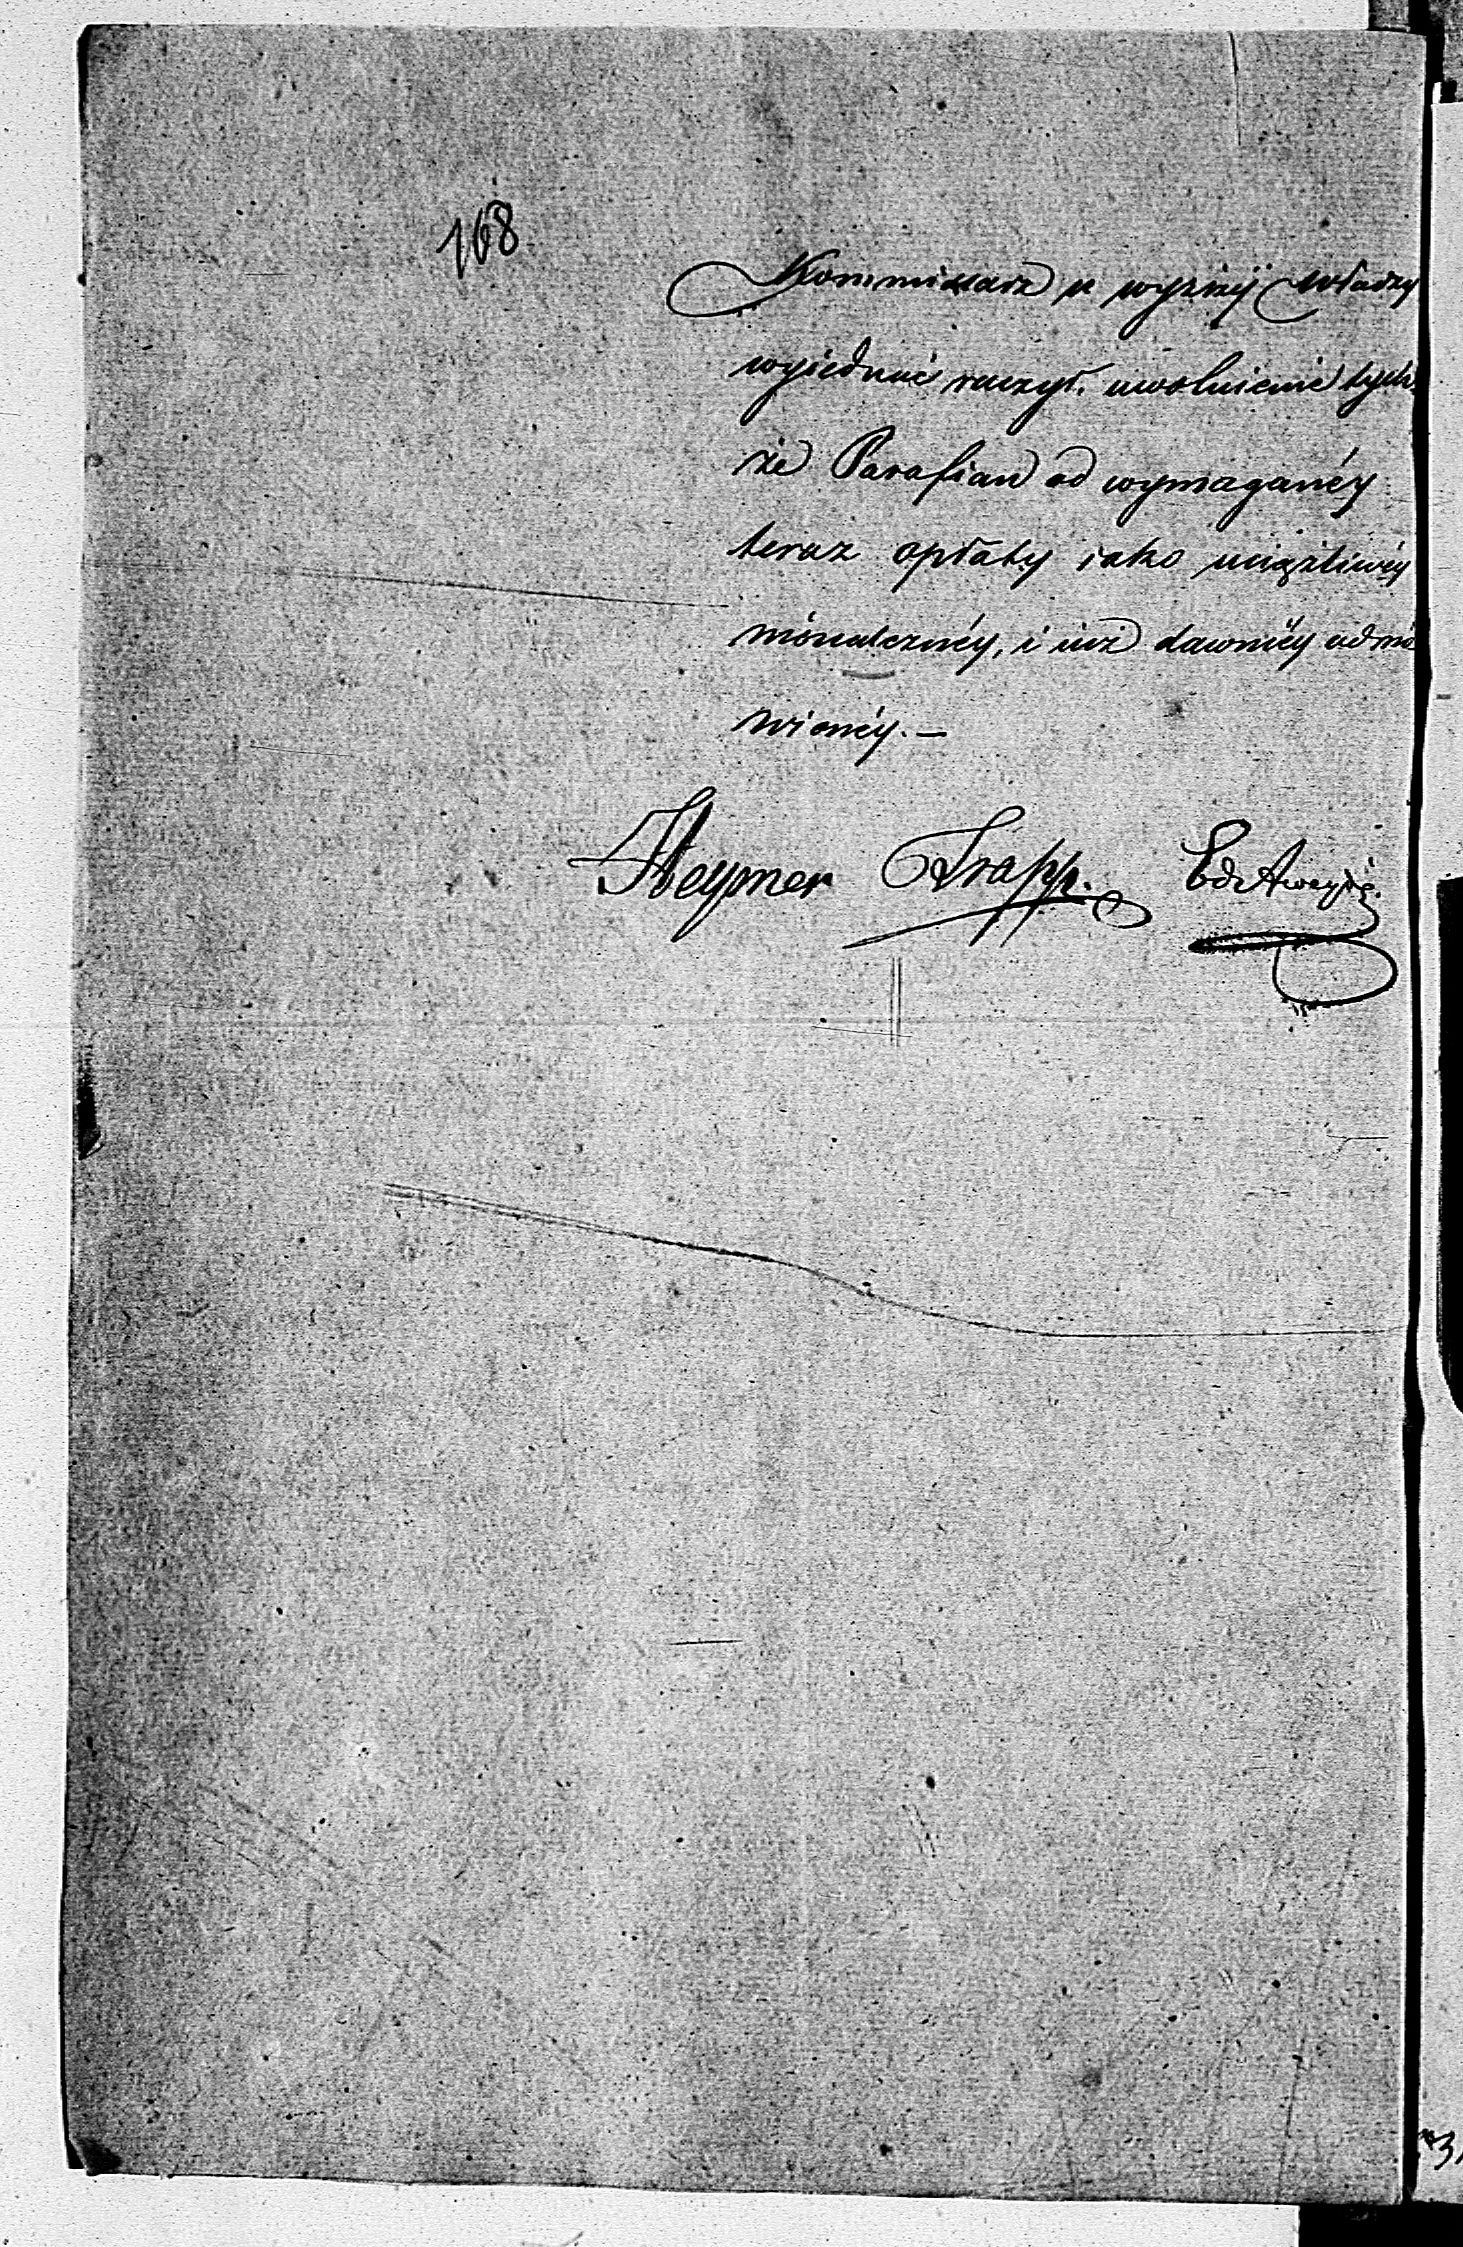 168
Kommissarz u wyższéy Władzy
wyiednać raczył. uwolnienie tych
że Parafian od wymaganéy
teraz opłaty iako uciążliwéy
niónaleznéy, i iuż dawniéy odmó
wionéy. —
Heymer Trapp.